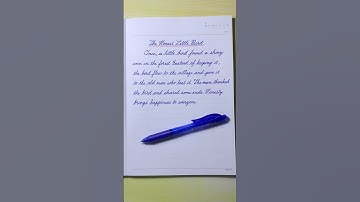 The Honest Little Bird
Once, a little bird found a shiny
coin in the forest. Instead of keeping it,
the bird flew to the village and gave it
to the old man who lost it. The man thanked
the bird and shared some seeds. Honesty
brings happiness to everyone.